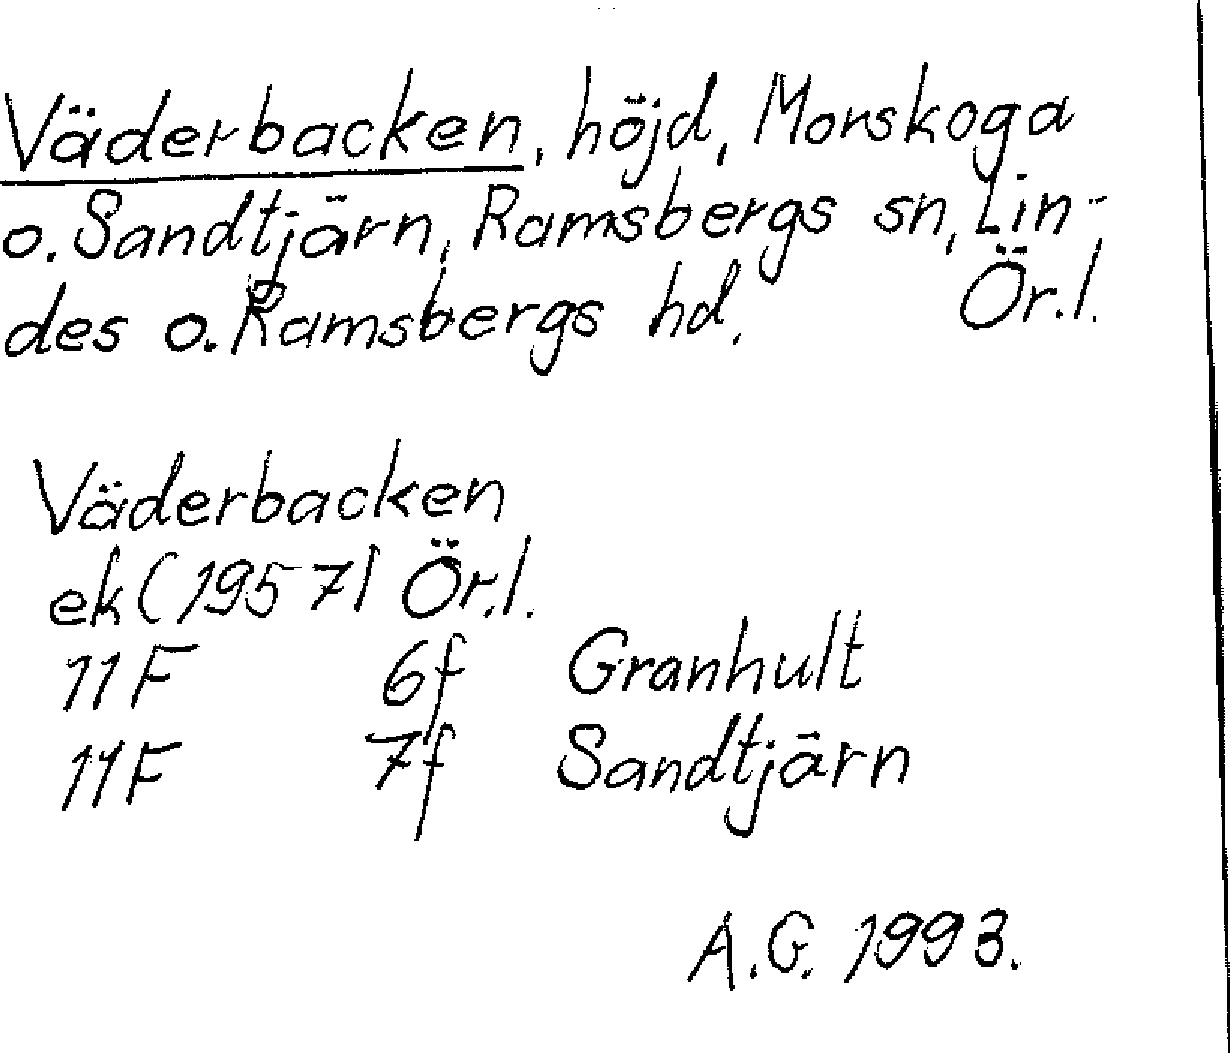 Väderbacken, höjd, Morskoga
o. Sandtjärn, Ramsbergs sn, Lin-
des o. Ramsbergs hd. Ör.l.
Väderbacken
ek (1957) Ör.l.
11F 6f Granhult
11F 7f Sandtjärn
A.G. 1993.